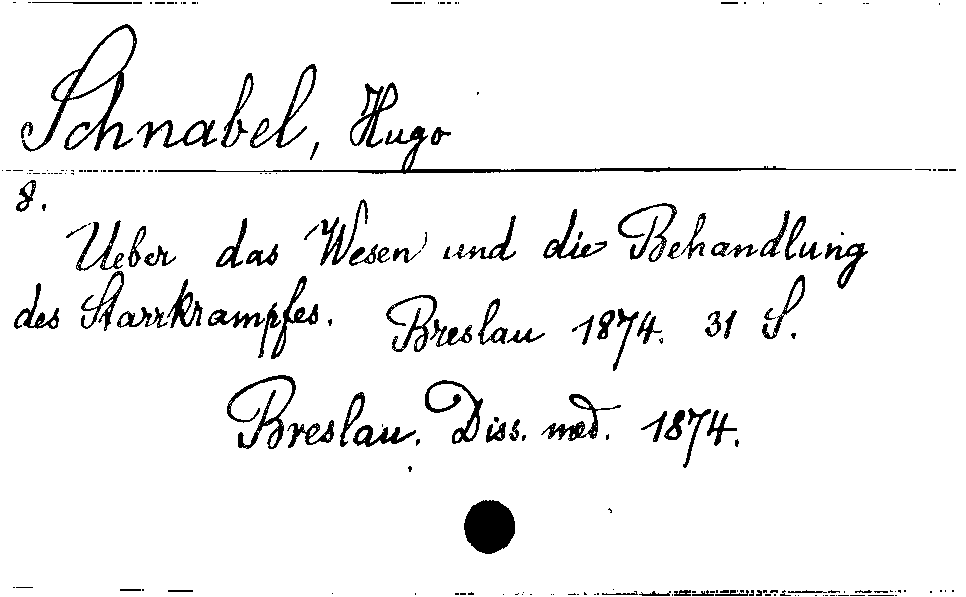 Schnabel, Hugo
8.
Ueber das Wesen und die Behandlung
des Starrkrampfes. Breslau 1874. 31 S.
Breslau. Diss. med. 1874.